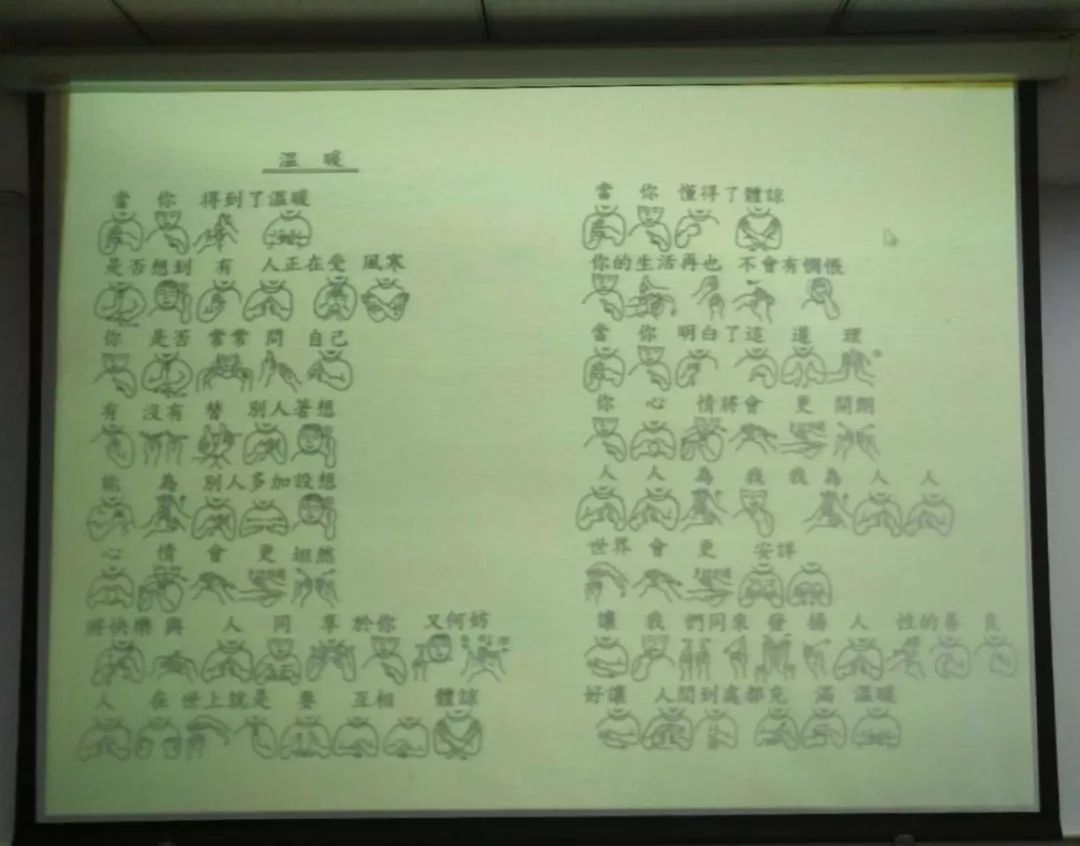 溫暖
當你得到了溫暖
是否想到有人正在受風寒
你是否常常問自己
有沒有替別人著想
能為別人多加設想
心情會更坦然
將快樂與人同享於你又何妨
人在世上就是要互相體諒
當你懂得了體諒
你的生活再也不會有惆悵
當你明白了這道理
你心情將會更開朗
人人為我我為人人
世界會更安詳
讓我們同來發揚人性的善良
好讓人間到處都充滿溫暖